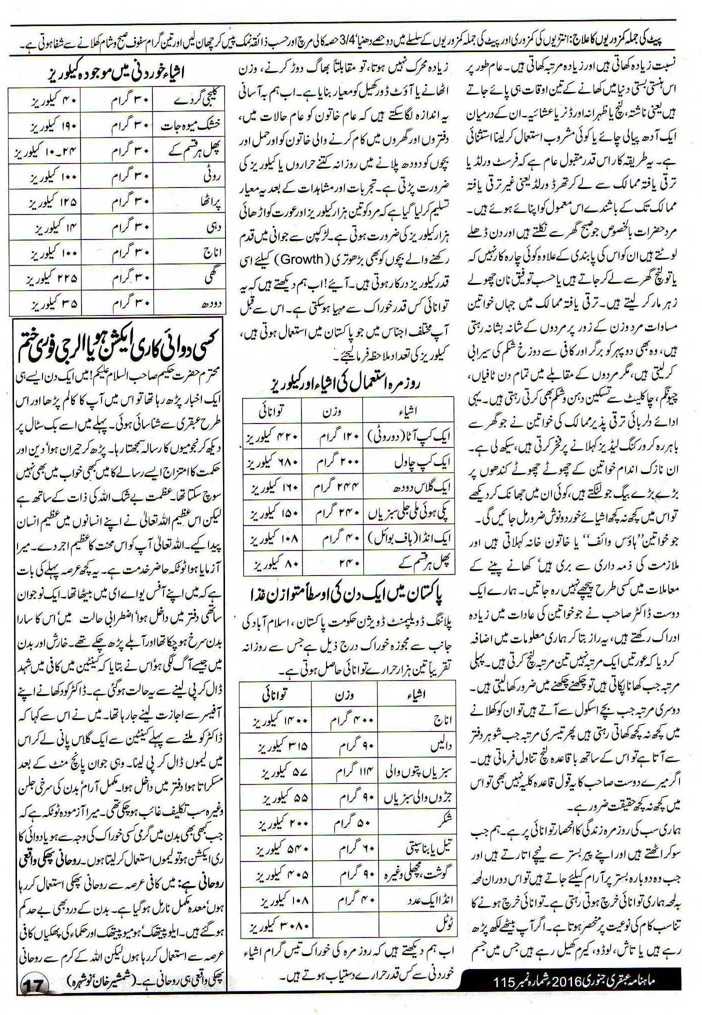 پیٹ کی جملہ کمزوریوں کا علاج: انتڑیوں کی کمزوری اور پیٹ کی جملہ کمزوریوں کے سلسلے میں دو حصے دھنیا' 3/4 حصہ کالی مرچ اور حسب ذائقہ نمک پیس کر چھان لیں اور تین گرام سفوف صبح و شام کھلانے سے شفا ہوتی ہے۔
نسبت زیادہ کھاتی ہیں اور زیادہ مرتبہ کھاتی ہیں۔ عام طور پر
اس ہنستی بستی دنیا میں کھانے کے تین اوقات ہی پائے جاتے
ہیں یعنی ناشتہ، لنچ یا ظہرانہ اور ڈنر یا عشائیہ۔ ان کے درمیان
ایک آدھ پیالی چائے یا کوئی مشروب استعمال کر لینا استثنائی
ہے۔ یہ طریقہ کار اس قدر مقبول عام ہے کہ فرسٹ ورلڈ یا
ترقی یافتہ ممالک سے لے کر تھرڈ ورلڈ یعنی غیر ترقی یافتہ
ممالک تک کے باشندے اس معمول کو اپنائے ہوئے ہیں۔
مرد حضرات بالخصوص جو صبح گھر سے نکلتے ہیں اور دن ڈھلے
لوٹتے ہیں ان کو اس کی پابندی کے علاوہ کوئی چارہ کار نہیں کہ
یا تو لنچ گھر سے لے کر جاتے ہیں یا حسب توفیق نان چھولے
زہر مار کر لیتے ہیں۔ ترقی یافتہ ممالک میں جہاں خواتین
مساوات مرد و زن کے زور پر مردوں کے شانہ بشانہ رہتی
ہیں، وہ بھی دوپہر کو برگر اور کافی سے دوزخ شکم کی سیرابی
کر لیتی ہیں، مگر مردوں کے مقابلے میں تمام دن ٹافیاں،
چیونگم، چاکلیٹ سے تسکین دہن و شکم بھی کرتی رہتی ہیں۔ یہی
ادائے دلربائی ترقی پذیر ممالک کی خواتین نے جو گھر سے
باہر رہ کر ورکنگ لیڈیز کہلانے پر فخر کرتی ہیں، سیکھ لی ہے۔
ان نازک اندام خواتین کے چھوٹے چھوٹے کندھوں پر
بڑے بڑے بیگ جو لٹکتے ہیں، کوئی ان میں جھانک کر دیکھے
تو اس میں کچھ نہ کچھ اشیائے خورد و نوش ضرور مل جائیں گی۔
جو خواتین "ہاؤس وائف" یا خاتون خانہ کہلاتی ہیں اور
ملازمت کی ذمہ داری سے بری ہیں' کھانے پینے کے
معاملات میں کسی طرح پیچھے نہیں رہ جاتیں۔ ہمارے ایک
دوست ڈاکٹر صاحب نے جو خواتین کی عادات میں زیادہ
ادراک رکھتے ہیں، یہ راز بتا کر ہماری معلومات میں اضافہ
کر دیا کہ عورتیں ایک مرتبہ نہیں تین مرتبہ لنچ کرتی ہیں۔ پہلی
مرتبہ جب کھانا پکاتی ہیں تو چکھنے چکھنے میں ضرور کھا لیتی ہیں۔
دوسری مرتبہ جب بچے اسکول سے آتے ہیں تو ان کو کھلانے
میں کچھ نہ کچھ کھاتی رہتی ہیں پھر تیسری مرتبہ جب شوہر دفتر
سے آتا ہے تو اس کے ساتھ باقاعدہ لنچ تناول فرماتی ہیں۔
اگر میرے دوست صاحب کا یہ قول قاعدہ کلیہ نہیں بھی تو اس
میں کچھ نہ کچھ حقیقت ضرور ہے۔
ہماری سب کی روزمرہ زندگی کا انحصار توانائی پر ہے۔ ہم جب
سو کر اٹھتے ہیں اور اپنے پیر بستر سے نیچے اتارتے ہیں اور
جب وہ دوبارہ بستر پر آرام کیلئے جاتے ہیں تو اس دوران لمحہ
بہ لمحہ ہماری توانائی خرچ ہوتی رہتی ہے۔ توانائی خرچ ہونے کا
تناسب کام کی نوعیت پر منحصر ہوتا ہے۔ اگر آپ بیٹھے لکھ پڑھ
رہے ہیں یا تاش، لوڈو، کیرم کھیل رہے ہیں جس میں جسم
زیادہ محرک نہیں ہوتا، تو مقابلتاً بھاگ دوڑ کرنے، وزن
اٹھانے یا آؤٹ ڈور کھیل کو معیار بنایا ہے۔ اب ہم بہ آسانی
یہ اندازہ لگا سکتے ہیں کہ عام خاتون کو عام حالات میں،
دفتروں اور گھروں میں کام کرنے والی خاتون کو اور حمل اور
بچوں کو دودھ پلانے میں روزانہ کتنے حراروں یا کیلوریز کی
ضرورت پڑتی ہے۔ تجربات اور مشاہدات کے بعد یہ معیار
تسلیم کر لیا گیا ہے کہ مرد کو تین ہزار کیلوریز اور عورت کو اڑھائی
ہزار کیلوریز کی ضرورت ہوتی ہے۔ لڑکپن سے جوانی میں قدم
رکھنے والے بچوں کو بھی بڑھوتری (Growth) کیلئے اسی
قدر کیلوریز درکار ہوتی ہیں۔ آئیے! اب ہم دیکھتے ہیں کہ یہ
توانائی کس قدر خوراک سے مہیا ہو سکتی ہے۔ اس سے قبل
آپ مختلف اجناس میں جو پاکستان میں استعمال ہوتی ہیں،
کیلوریز کی تعداد ملاحظہ فرما لیجئے۔
روزمرہ استعمال کی اشیاء اور کیلوریز
اشیاء وزن توانائی
ایک کپ آٹا (دو روٹی) ۱۲۰ گرام ۴۲۰ کیلوریز
ایک کپ چاول ۲۰۰ گرام ۶۸۰ کیلوریز
ایک گلاس دودھ ۲۴۴ گرام ۱۶۰ کیلوریز
پکی ہوئی ملی جلی سبزیاں ۲۴۰ گرام ۱۵۰ کیلوریز
ایک انڈا (ہاف بوائل) ۴۰ گرام ۱۰۸ کیلوریز
پھل ہر قسم کے ۲۴۰ ۸۰ کیلوریز
پاکستان میں ایک دن کی اوسطاً متوازن غذا
پلاننگ ڈویلپمنٹ ڈویژن حکومت پاکستان، اسلام آباد کی
جانب سے مجوزہ خوراک درج ذیل ہے جس سے روزانہ
تقریباً تین ہزار حرارے توانائی حاصل ہوتی ہے۔
اشیاء وزن توانائی
اناج ۴۰۰ گرام ۱۴۰۰ کیلوریز
دالیں ۹۰ گرام ۳۱۵ کیلوریز
سبزیاں پتوں والی ۱۱۴ گرام ۵۷ کیلوریز
جڑوں والی سبزیاں ۹۰ گرام ۵۵ کیلوریز
شکر ۵۰ گرام ۲۰۰ کیلوریز
تیل یا بناسپتی ۶۰ گرام ۵۴۰ کیلوریز
گوشت، مچھلی وغیرہ ۹۰ گرام ۴۰۵ کیلوریز
انڈا ایک عدد ۴۰ گرام ۱۰۸ کیلوریز
ٹوٹل ۳۰۸۰ کیلوریز
اب ہم دیکھتے ہیں کہ روزمرہ کی خوراک تیس گرام اشیاء
خوردنی سے کس قدر حرارے دستیاب ہوتے ہیں۔
اشیاء خوردنی میں موجودہ کیلوریز
کلیجی گردے ۳۰ گرام ۴۰ کیلوریز
خشک میوہ جات ۳۰ گرام ۱۹۰ کیلوریز
پھل ہر قسم کے ۳۰ گرام ۲۴-۱۰ کیلوریز
روٹی ۳۰ گرام ۱۰۰ کیلوریز
پراٹھا ۳۰ گرام ۱۲۵ کیلوریز
دہی ۳۰ گرام ۱۴ کیلوریز
اناج ۳۰ گرام ۱۰۰ کیلوریز
گھی ۳۰ گرام ۲۲۵ کیلوریز
دودھ ۳۰ گرام ۳۵ کیلوریز
کسی دوائی کا ری ایکشن ہو یا الرجی فوری ختم
محترم حضرت حکیم صاحب السلام علیکم! میں ایک دن ایسے ہی
ایک اخبار پڑھ رہا تھا تو اس میں آپ کا کالم پڑھا اور اس
طرح عبقری سے شناسائی ہوئی۔ پہلے میں اسے بک سٹال پر
دیکھ کر نجومیوں کا رسالہ سمجھتا رہا۔ پڑھ کر حیران ہوا' دین اور
حکمت کا امتزاج ایسے رسالے کا میں کبھی خواب میں بھی نہیں
سوچ سکتا تھا۔ عظمت بے شک اللہ کی ذات کے ساتھ ہے
لیکن اس عظیم اللہ تعالیٰ نے اپنے انسانوں میں عظیم انسان
پیدا کیے۔ اللہ تعالیٰ آپ کو اس محنت کا عظیم اجر دے۔ میرا
آزمایا ہوا ٹوٹکہ حاضر خدمت ہے۔ یہ کچھ عرصہ پہلے کی بات
ہے کہ میں اپنے آفس یو اے ای میں بیٹھا تھا۔ ایک نوجوان
ساتھی دفتر میں داخل ہوا' اضطرابی حالت میں' اس کا سارا
بدن سرخ ہو چکا تھا اور آبلے پڑ چکے تھے۔ خارش اور بدن
میں جیسے آگ لگی ہو' اس نے بتایا کہ کینٹین میں کافی میں شہد
ڈال کر پی لینے سے یہ حالت ہو گئی ہے۔ ڈاکٹر کو دکھانے اپنے
آفیسر سے اجازت لینے جا رہا تھا۔ میں نے اس سے کہا کہ
ڈاکٹر کو ملنے سے پہلے کینٹین سے ایک گلاس پانی لے کر اس
میں لیموں ڈال کر پی لینا۔ وہی جوان پانچ منٹ کے بعد
مسکراتا ہوا دفتر میں داخل ہوا۔ مکمل آرام' بدن کی سرخی جلن
وغیرہ سب تکلیف غائب ہو چکی تھی۔ میرا آزمودہ ٹوٹکہ ہے کہ
جب کبھی بھی بدن میں گرمی کسی خوراک کی وجہ سے ہو یا دوائی کا
ری ایکشن ہو تو لیموں استعمال کر لیتا ہوں۔ روحانی پھکی واقعی
روحانی ہے: میں کافی عرصہ سے روحانی پھکی استعمال کر رہا
ہوں' معدہ مکمل نارمل ہو گیا ہے۔ بدن کے درد بھی بے حد کم
ہو گئے ہیں۔ ایلو پیتھک' ہومیو پیتھک اور حکماء کی پھکیاں کافی
عرصہ سے استعمال کر رہا ہوں لیکن اللہ کے کرم سے روحانی
پھکی واقعی ہی روحانی ہے۔ (شمشیر خان' نوشہرہ)
ماہنامہ عبقری جنوری 2016ء شمارہ نمبر 115
17